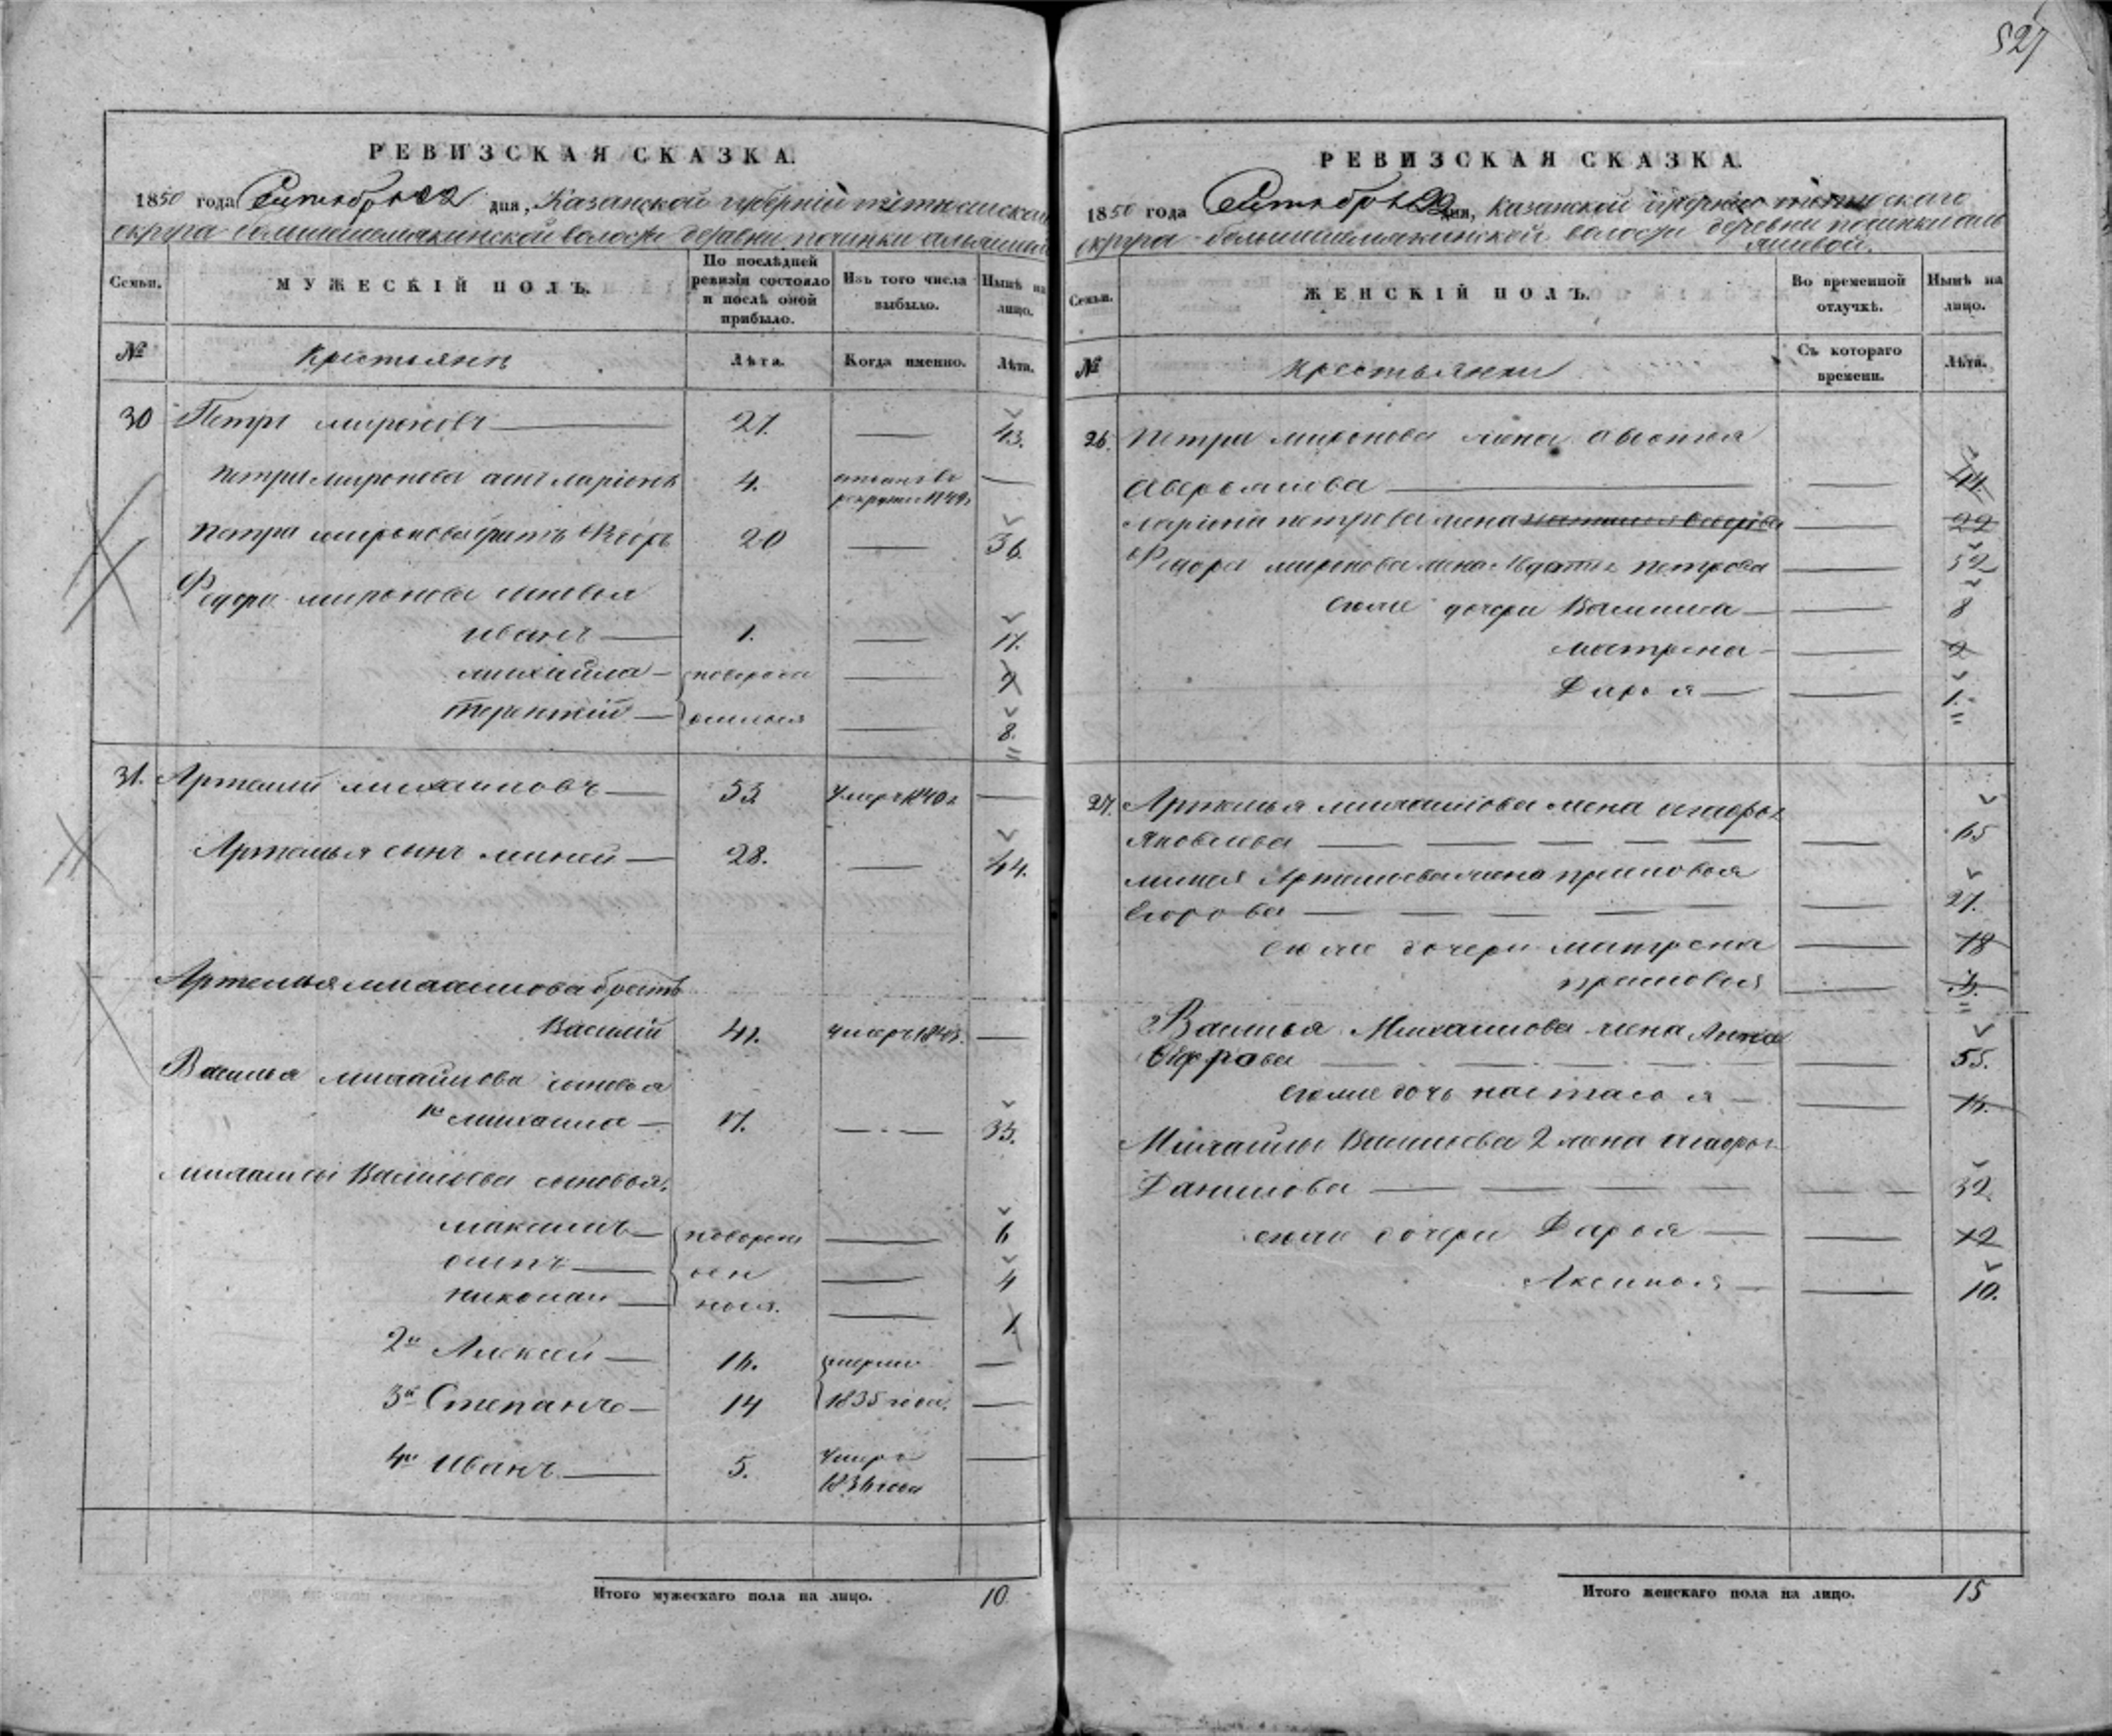 527
РЕВИЗСКАЯ СКАЗКА.
1850 года Сентября 22 дня, Казанской губернии тетюшскаго
округа большешемякинской волости деревни починки
Семьи.
МУЖЕСКІЙ ПОЛЪ.
По послѣдней ревизіи состояло и послѣ оной прибыло.
Изъ того числа выбыло.
Нынѣ на лицо.
№
Крестьяне
Лѣта.
Когда именно.
Лѣта.
30 Петръ мироновъ 27. 43.
Петра миронова сынъ ларіонъ 4. отданъ в рекруты 1849
Петра миронова братъ Федоръ 20 36.
Федора миронова сыновья
иванъ 1. 17.
михайла новорож 9
терентий денныя 8.
31. Артемий михаиловъ 53 умеръ 1840
Артемья сынъ миней 28. 44.
Артемья михаилова братъ
Василий 41. умеръ 184
Василья михайлова сыновья
1й михаила 17. 33.
михаилы Васильева сыновья.
максимъ новорож 6
осипъ ден 4
николай ныя. 1.
2й Алексей 16. умерли
3й Степанъ 14 1835 года.
4й иванъ 5. умеръ
1836 года
Итого мужескаго пола на лицо. 10
РЕВИЗСКАЯ СКАЗКА.
1850 года Сентября 22 дня, казанской губернии тетюшскаго
округа большешемякинской волости деревни починки
Семьи.
ЖЕНСКІЙ ПОЛЪ.
Во временной отлучкѣ.
Нынѣ на лицо.
№
Крестьянки
Съ котораго времени.
Лѣта.
26. Петра миронова жена авдотья
Аверьянова 44.
лариона петрова жена 22
Федора миронова жена петрова 32
ихже дочери Василиса 8
матрена 2
Дарья 1.
27. Артемья михаилова жена агафья
Яковлева 65
минея Артемьева жена прасковья
Егорова 27.
ихже дочери матрена 18
прасковья
Василья Михаилова жена Анна
55.
ихже дочь настасья
Михаилы Васильева 2 жена агафья
Данилова 32.
ихже дочери Дарья 12
Аксинья 10.
Итого женскаго пола на лицо. 15